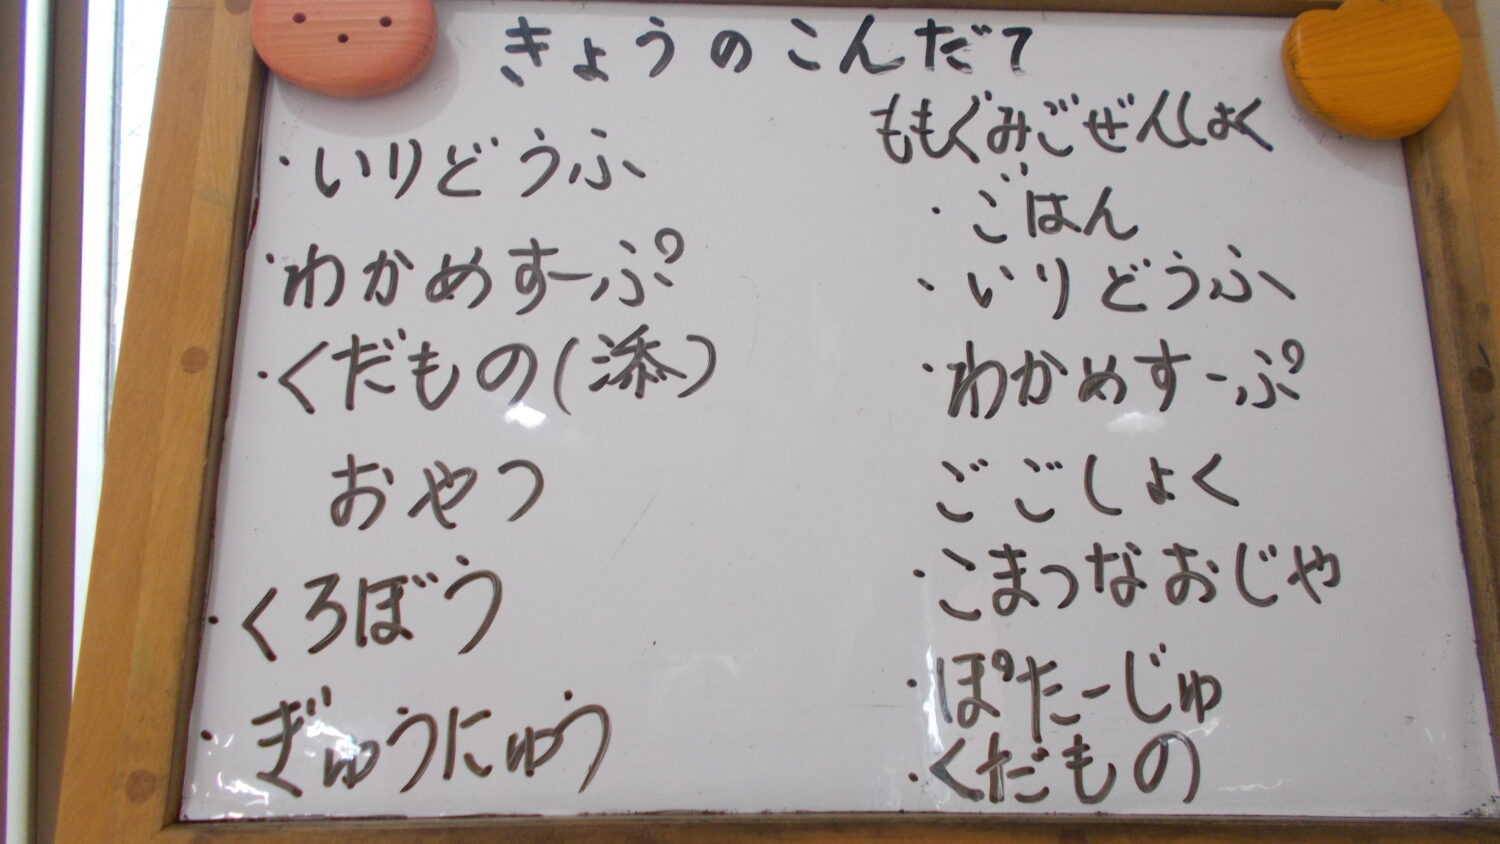 きょうのこんだて
・いりどうふ
・わかめすーぷ
・くだもの(添)
おやつ
・くろぼう
・ぎゅうにゅう
ももぐみごぜんしょく
・ごはん
・いりどうふ
・わかめすーぷ
ごごしょく
・こまつなおじや
・ぽたーじゅ
・くだもの